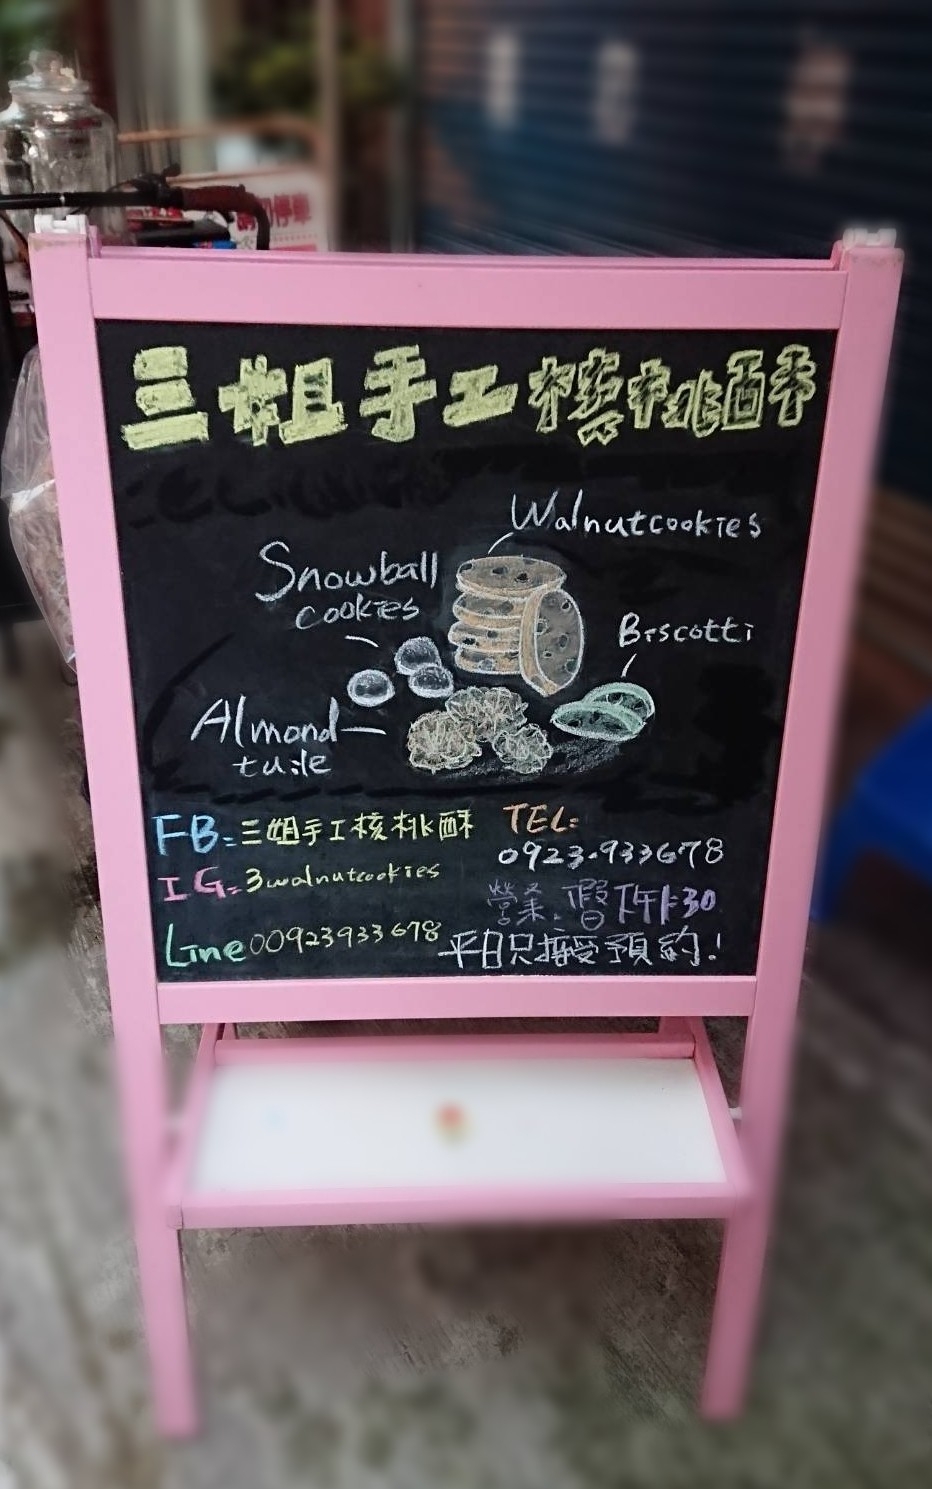 三姐手工核桃酥
Walnutcookies
Snowball
cookies
Biscotti
Almond
tuile
FB:三姐手工核桃酥
IG:3walnutcookies
Line00923933678
TEL:
0923.933678
營業:假日下午1:30
平日只接受預約!